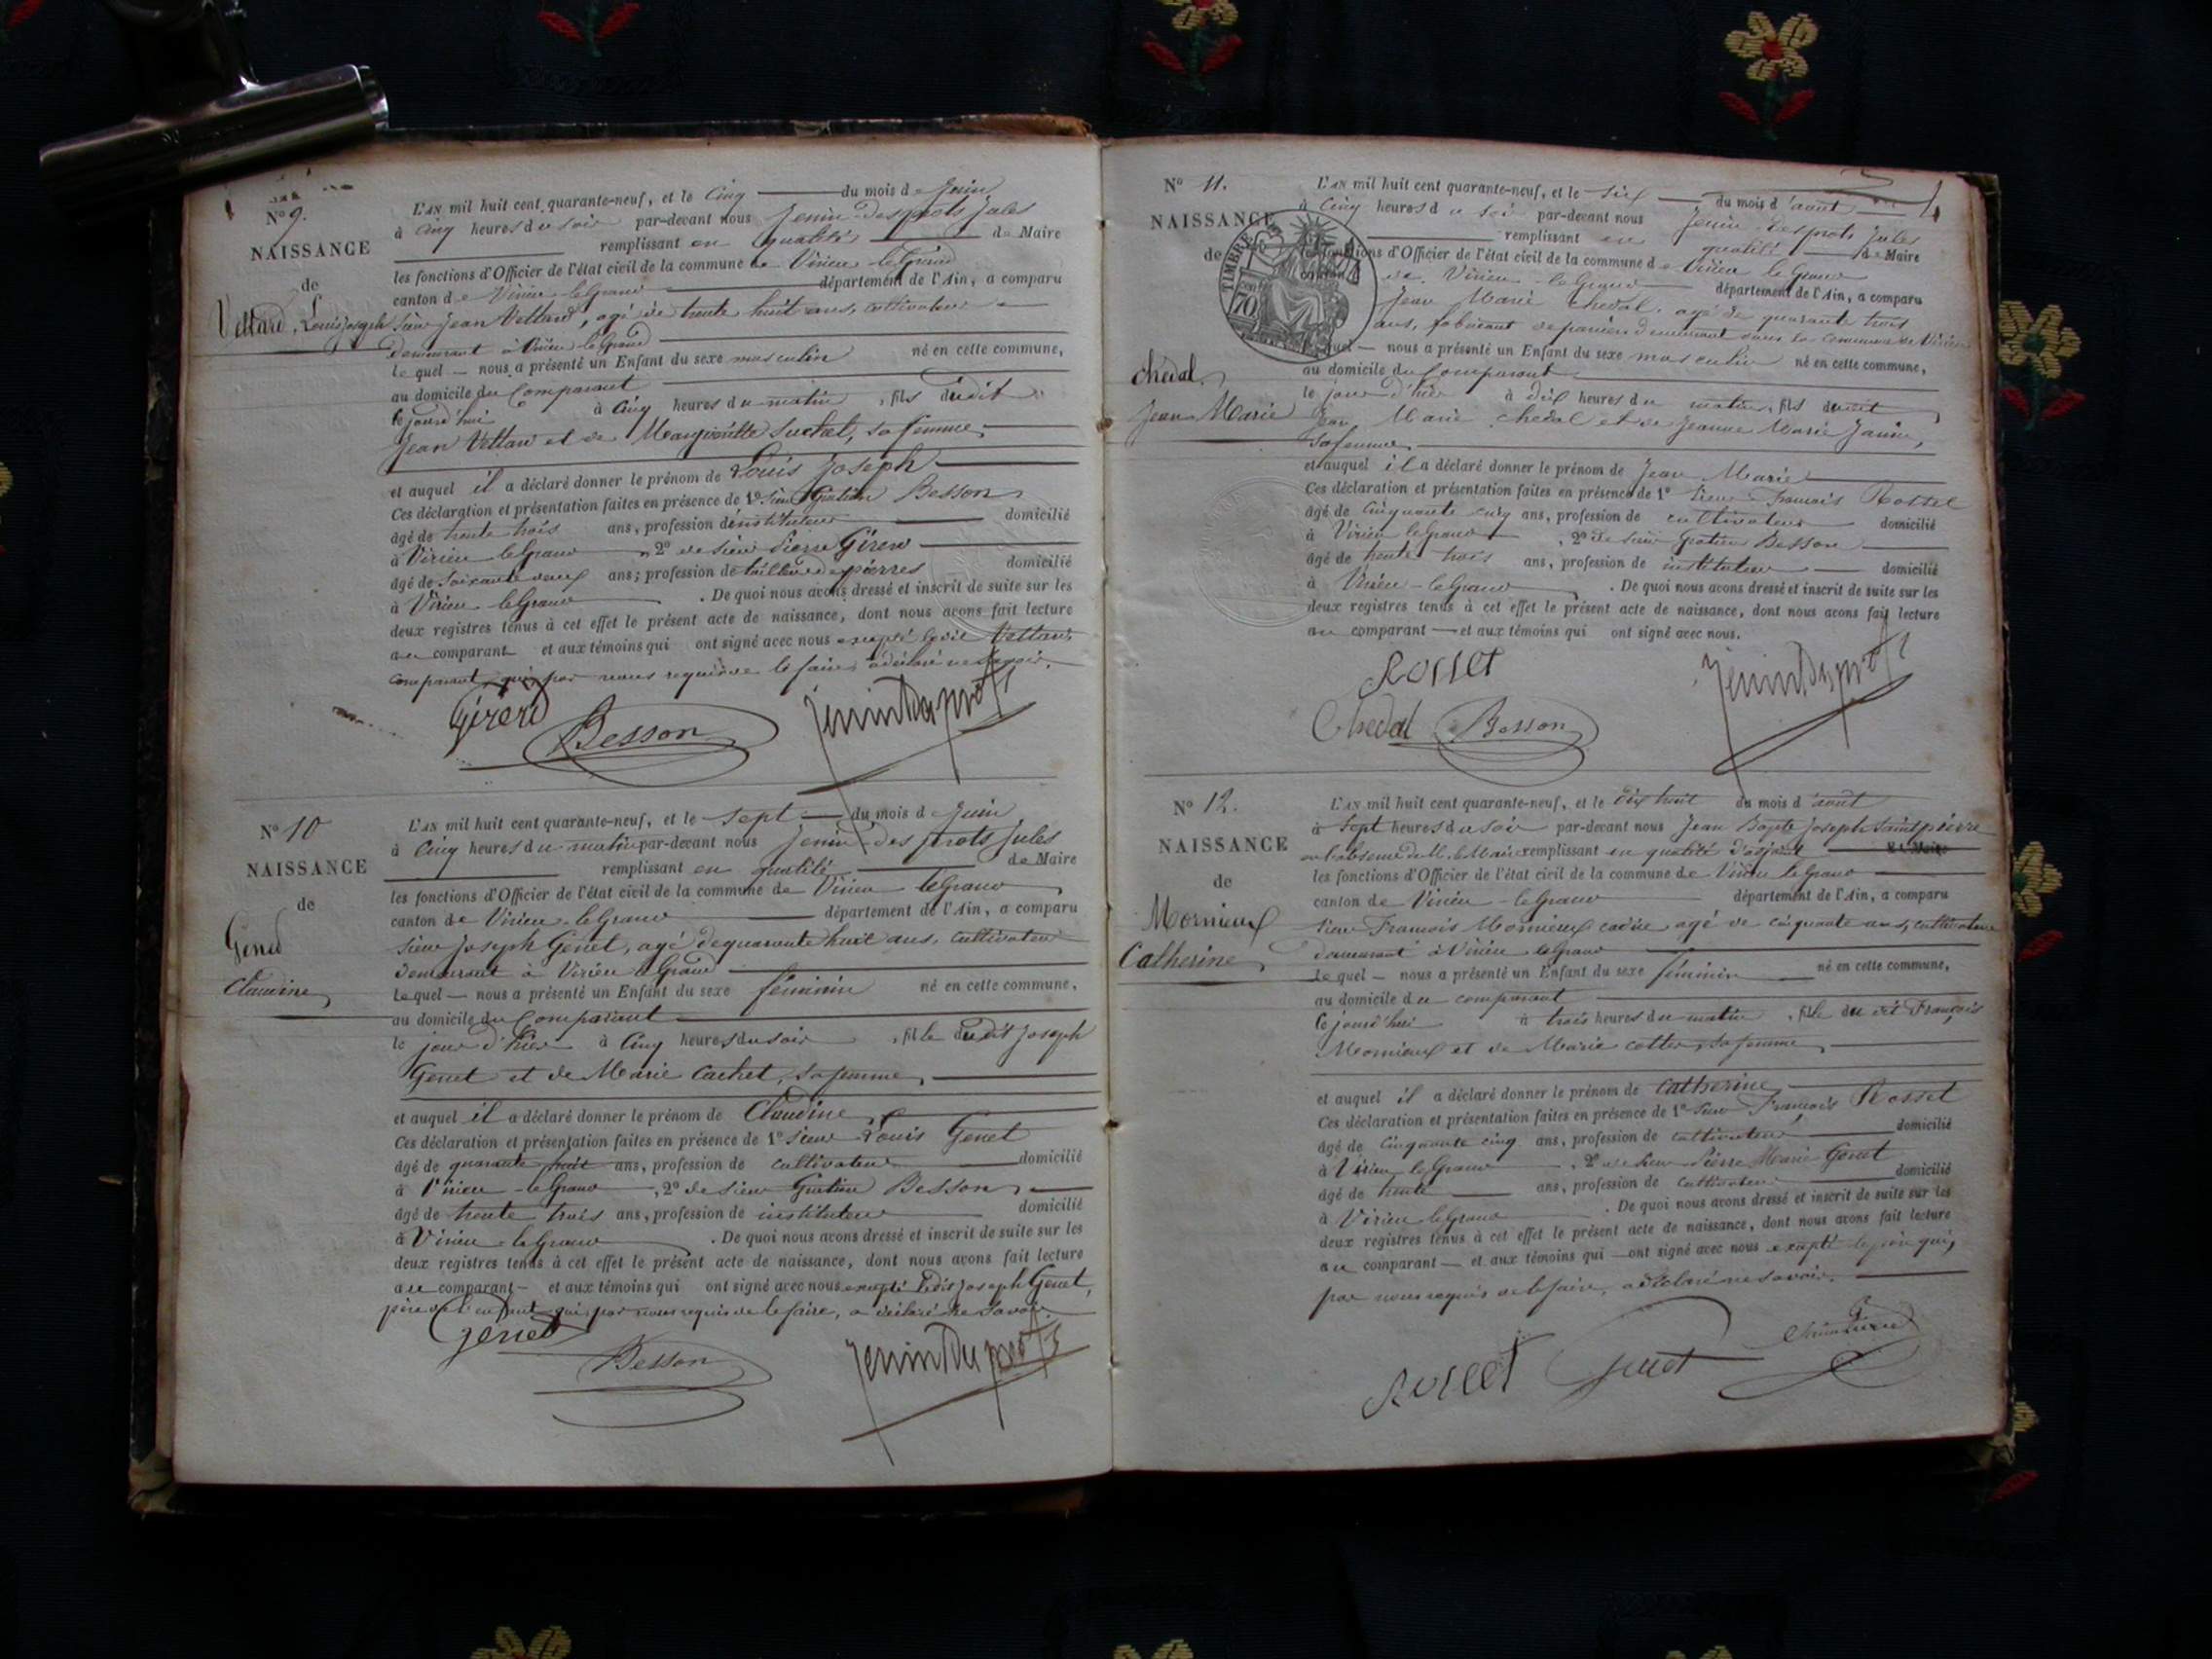 N° 9.
NAISSANCE
de
Vettard, Louis Joseph
L'AN mil huit cent quarante-neuf, et le Cinq du mois de Juin
à Cinq heures du soir par-devant nous Jenin-Desprots Jules
remplissant en qualité de Maire
les fonctions d'Officier de l'état civil de la commune de Virieu-le-Grand
canton de Virieu-le-Grand département de l'Ain, a comparu
Sieur Jean Vettard, agé de trente huit ans, cultivateur
demeurant à Virieu-le-Grand
Lequel nous a présenté un Enfant du sexe masculin né en cette commune,
au domicile du Comparant
Cejourd'hui à Cinq heures du matin, fils dudit
Jean Vettard et de Marguerite Suchet, sa femme,
et auquel il a déclaré donner le prénom de Louis Joseph
Ces déclaration et présentation faites en présence de 1° Sieur Gratien Besson
âgé de trente trois ans, profession d'instituteur domicilié
à Virieu-le-Grand, 2° de Sieur Pierre Girerd
âgé de soixante deux ans; profession de tailleur de pierres domicilié
à Virieu-le-Grand. De quoi nous avons dressé et inscrit de suite sur les
deux registres tenus à cet effet le présent acte de naissance, dont nous avons fait lecture
au comparant et aux témoins qui ont signé avec nous excepté ledit Vettard,
comparant, qui, par nous requis de le faire, a déclaré ne savoir.
Girerd
Besson
Jenin Des prots
N° 10
NAISSANCE
de
Genet
Claudine
L'AN mil huit cent quarante-neuf, et le Sept du mois de Juin
à Cinq heures du matin par-devant nous Jenin-Desprots Jules
remplissant en qualité de Maire
les fonctions d'Officier de l'état civil de la commune de Virieu-le-Grand
canton de Virieu-le-Grand département de l'Ain, a comparu
Sieur Joseph Genet, agé de quarante huit ans, cultivateur
demeurant à Virieu-le-Grand
Lequel nous a présenté un Enfant du sexe féminin né en cette commune,
au domicile du Comparant
le jour d'hier à Cinq heures du soir, fille dudit Joseph
Genet et de Marie Cachet, sa femme,
et auquel il a déclaré donner le prénom de Claudine,
Ces déclaration et présentation faites en présence de 1° Sieur Louis Genet
âgé de quarante huit ans, profession de cultivateur domicilié
à Virieu-le-Grand, 2° de Sieur Gratien Besson,
âgé de trente trois ans, profession de instituteur domicilié
à Virieu-le-Grand. De quoi nous avons dressé et inscrit de suite sur les
deux registres tenus à cet effet le présent acte de naissance, dont nous avons fait lecture
au comparant et aux témoins qui ont signé avec nous excepté ledit Joseph Genet,
père de l'enfant qui, par nous requis de le faire, a déclaré ne savoir.
Genet
Besson
Jenin Des prots
4
N° 11.
NAISSANCE
de
TIMBRE
70
Chedal
Jean Marie
L'AN mil huit cent quarante-neuf, et le six du mois d'août
à Cinq heures du soir par-devant nous Jenin-Desprots Jules
remplissant en qualité de Maire
les fonctions d'Officier de l'état civil de la commune de Virieu-le-Grand
canton de Virieu-le-Grand département de l'Ain, a comparu
Jean Marie Chedal, agé de quarante trois
ans, fabricant de paniers demeurant dans la commune de Virieu
Lequel nous a présenté un Enfant du sexe masculin né en cette commune,
au domicile du Comparant
le jour d'hier à dix heures du matin, fils dudit
Jean Marie Chedal et de Jeanne Marie Janin,
sa femme
et auquel il a déclaré donner le prénom de Jean Marie
Ces déclaration et présentation faites en présence de 1° Sieur François Rosset
âgé de Cinquante cinq ans, profession de cultivateur domicilié
à Virieu-le-Grand, 2° de Sieur Gratien Besson
âgé de trente trois ans, profession de instituteur domicilié
à Virieu-le-Grand. De quoi nous avons dressé et inscrit de suite sur les
deux registres tenus à cet effet le présent acte de naissance, dont nous avons fait lecture
au comparant et aux témoins qui ont signé avec nous.
Rosset
Chedal Besson
Jenin Des prots
N° 12.
NAISSANCE
de
Mornieux
Catherine
L'AN mil huit cent quarante-neuf, et le dix huit du mois d'août
à Sept heures du soir par-devant nous Jean Bapte Joseph Saintpierre
en l'absence de M. le Maire remplissant en qualité d'adjoint de Maire
les fonctions d'Officier de l'état civil de la commune de Virieu-le-Grand
canton de Virieu-le-Grand département de l'Ain, a comparu
Sieur François Mornieux cadet, agé de cinquante ans, cultivateur
demeurant à Virieu-le-Grand
Lequel nous a présenté un Enfant du sexe féminin né en cette commune,
au domicile du comparant
Cejourd'hui à trois heures du matin, fille du dit François
Mornieux et de Marie Cotter, sa femme,
et auquel il a déclaré donner le prénom de Catherine
Ces déclaration et présentation faites en présence de 1° Sieur François Rosset
âgé de Cinquante cinq ans, profession de cultivateur domicilié
à Virieu-le-Grand, 2° de Sieur Pierre Marie Genet
âgé de trente ans, profession de cultivateur domicilié
à Virieu-le-Grand. De quoi nous avons dressé et inscrit de suite sur les
deux registres tenus à cet effet le présent acte de naissance, dont nous avons fait lecture
au comparant et aux témoins qui ont signé avec nous excepté le père qui,
par nous requis de le faire, a déclaré ne savoir.
Rosset
Genet